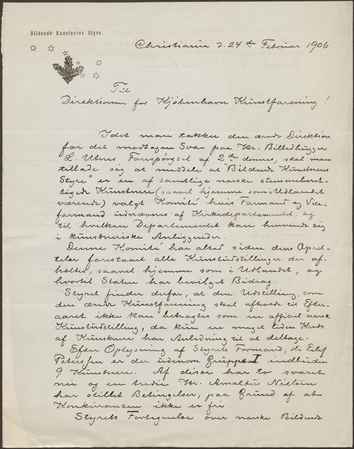 Bildende Kunstneres Styre
Christiania d 24de Februar 1906
Til
Direktionen for Kjøbenhavn Kunstforening!
Idet man takker den ærede Direktion
for det modtagne Svar paa Hr. Billedhugger
L. Utnes Forespørgsel af 2den dennes, skal man
tillade sig at meddele at Bildende Kunstneres
Styre er en af samtlige norske stemmeberet-
tigede Kunstnere (saavel hjemme som i Udlandet
værende) valgt Komité hvis Formand og Vice-
formand indrømmes af Kirkedepartementet, og
til hvilken Departementet kan henvende sig
i kunstneriske Anliggender.
Denne Komité har altid siden dens Opret-
telse forestaaet alle Kunstudstillinger der af-
holdtes, saavel hjemme som i Utlandet, og
hvortil Staten har bevilget Bidrag.
Styret finder derfor, at den Udstilling som
den ærede Kunstforening skal afholde til Efter-
aaret ikke kan betragtes som en officiel norsk
Kunstudstilling, da kun en meget liden Kreds
af Kunstnere har Anledning til at deltage.
Efter Oplysning af Styrets Formand, Hr Eilif
Peterssen er der indenom Gruppe I indbudt
9 Kunstnere. Af disse har to svaret
nei og en tredie Hr. Amaldus Nielsen
har stillet Betingelser, paa Grund af at
Konkurransen ikke er fri
Styrets Fortegnelse over norske Bildende